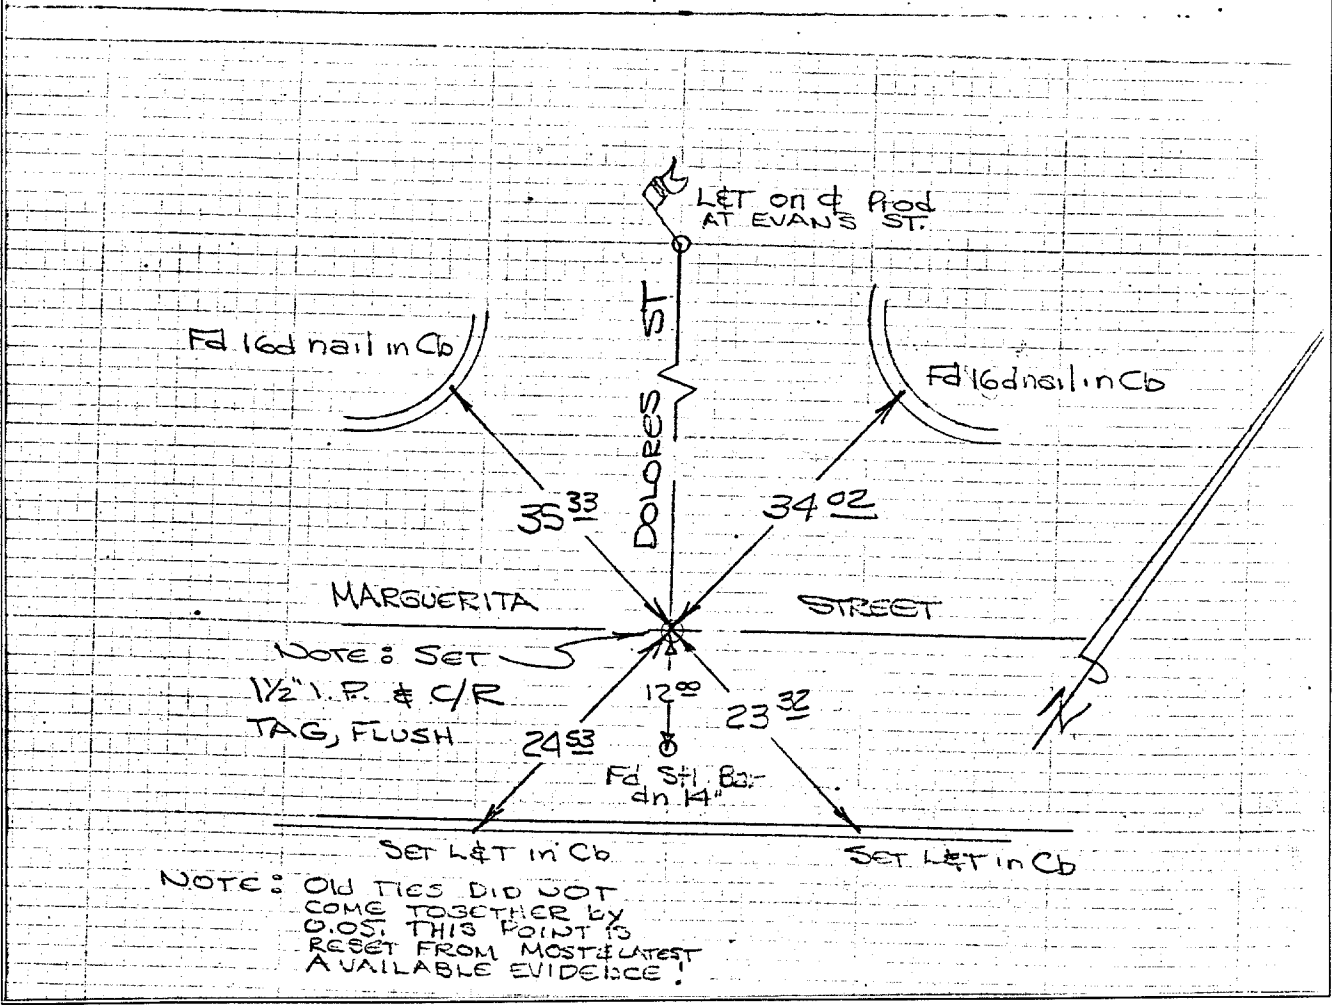 L&T on ℄ Prod
AT EVAN'S ST.
Fd 16d nail in Cb
Fd 16d nail in Cb
DOLORES ST
35 33
34 02
MARGUERITA STREET
NOTE: SET
1½" I.P. & C/R
TAG, FLUSH
12 00
23 32
24 53
Fd Stl. Bar
dn 14"
N
SET L&T in Cb
SET L&T in Cb
NOTE: Old TIES DID NOT
COME TOGETHER by
0.05. THIS POINT IS
RESET FROM MOST & LATEST
AVAILABLE EVIDENCE!